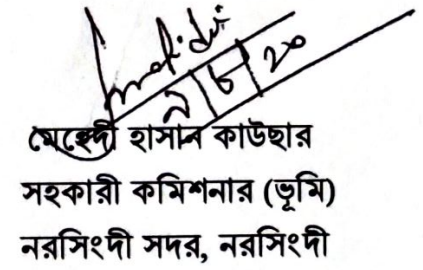 ৯/৮/২০
মেহেদী হাসান কাউছার
সহকারী কমিশনার (ভূমি)
নরসিংদী সদর, নরসিংদী